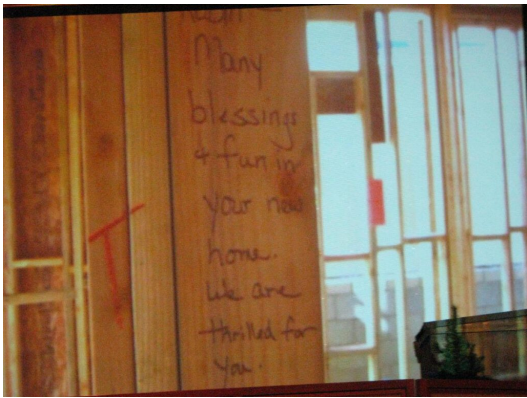 Many
blessings
& fun in
your new
home.
We are
thrilled for
you.
T